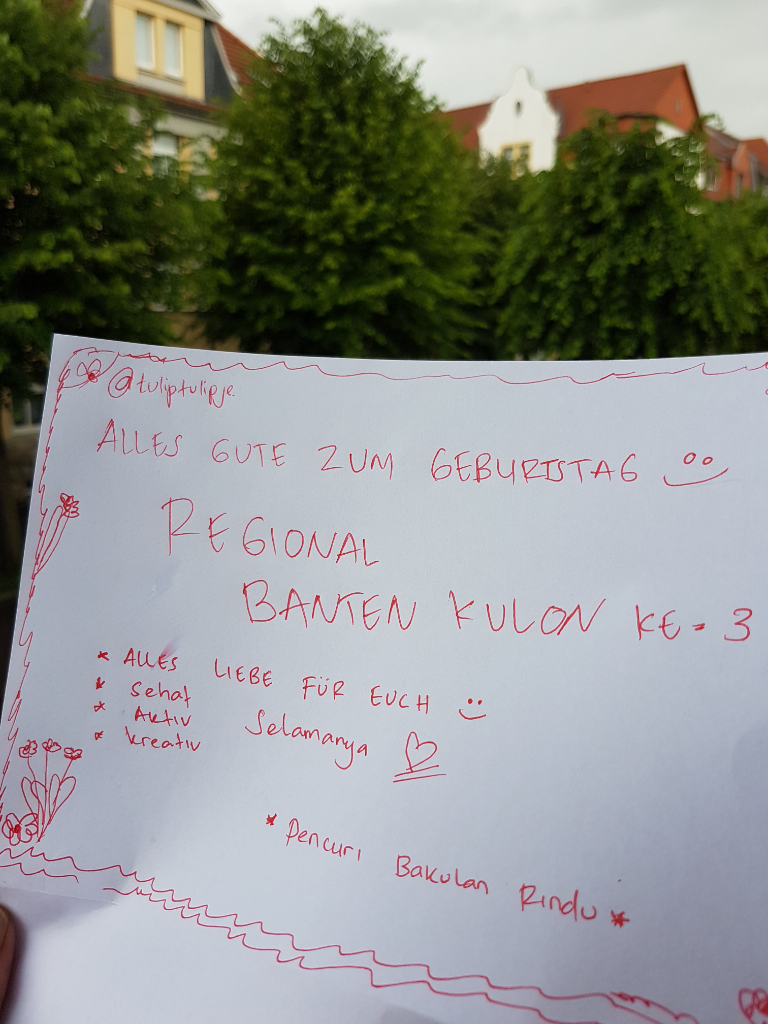 @tuliptulipje
ALLES GUTE ZUM GEBURTSTAG
REGIONAL
BANTEN KULON KE-3
* ALLES LIEBE FÜR EUCH
* Sehat
* Aktiv Selamanya
* kreativ
* Pencuri Bakulan Rindu *